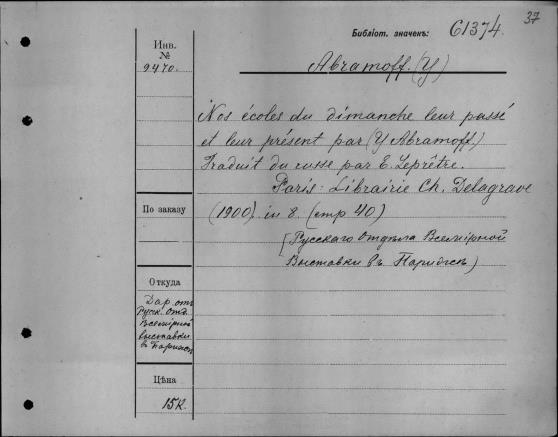 37
Библіот. значекъ: 61374
Инв.
№
9470.
Abramoff. (Y)
Nos écoles du dimanche leur passé
et leur présent par (Y Abramoff.)
Traduit du russe par E. Leprêtre.
Paris. Librairie Ch. Delagrave
(1900) in 8. (стр 40)
[Русскаго Отдѣла Всемірной
Выставки въ Парижѣ)
По заказу
Откуда
Дар. отъ
Русск. Отд.
Всемірной
выставки
въ Парижѣ
Цѣна
15к.